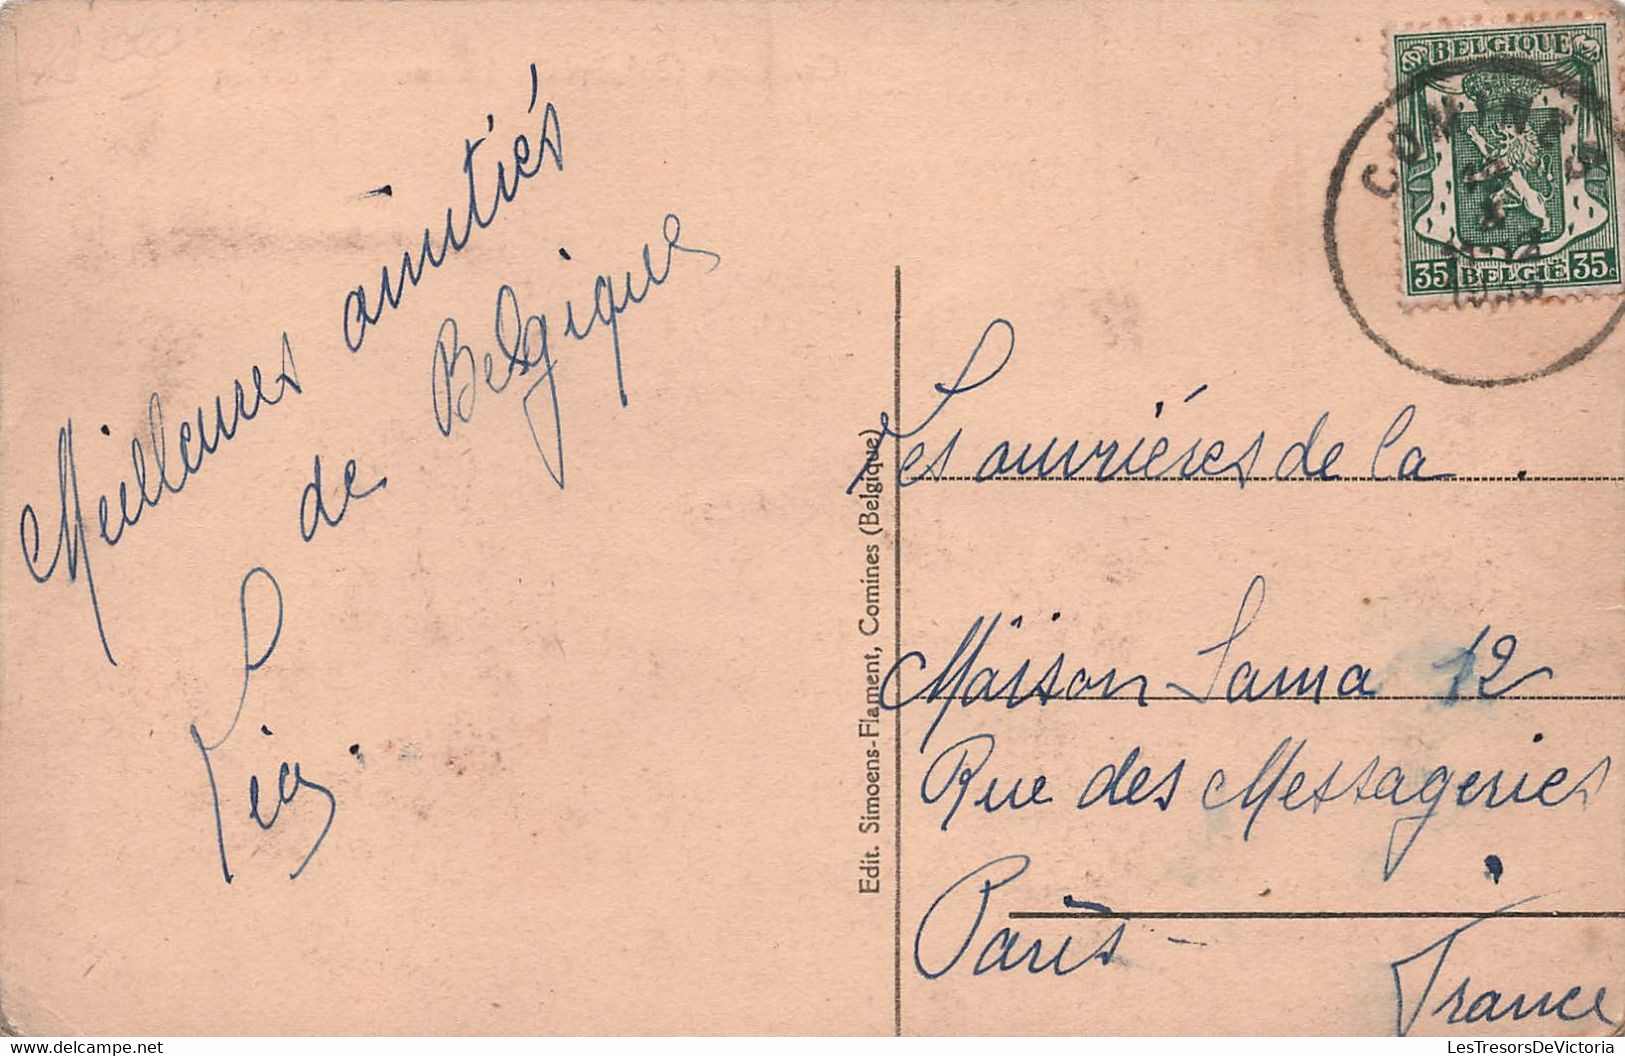 Meilleures amitiés
de Belgique
Léa.
Edit. Simoens-Flament, Comines (Belgique)
BELGIQUE
COMINES
35 BELGIË 35
Les ouvrières de la
Maison Lama 12
Rue des Messageries
Paris -
France
LesTresorsDeVictoria